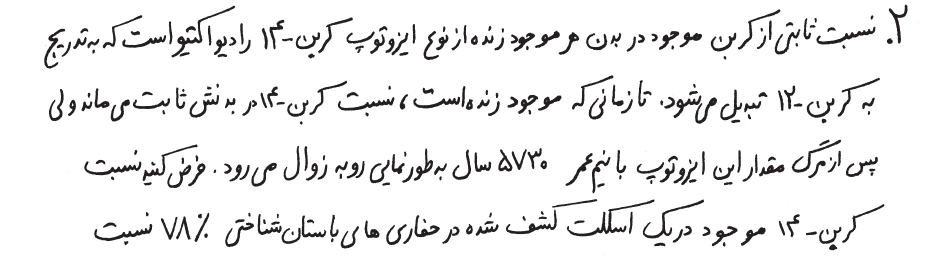 ۲. نسبت ثابتی از کربن موجود در بدن هر موجود زنده از نوع ایزوتوپ کربن-۱۴ رادیواکتیو است که به تدریج
به کربن-۱۲ تبدیل می‌شود. تا زمانی که موجود زنده است، نسبت کربن-۱۴ در بدنش ثابت می‌ماند ولی
پس از مرگ مقدار این ایزوتوپ با نیم‌عمر ۵۷۳۰ سال به طور نمایی رو به زوال می‌رود. فرض کنید نسبت
کربن-۱۴ موجود در یک اسکلت کشف شده در حفاری‌های باستان‌شناختی ۷۸٪ نسبت